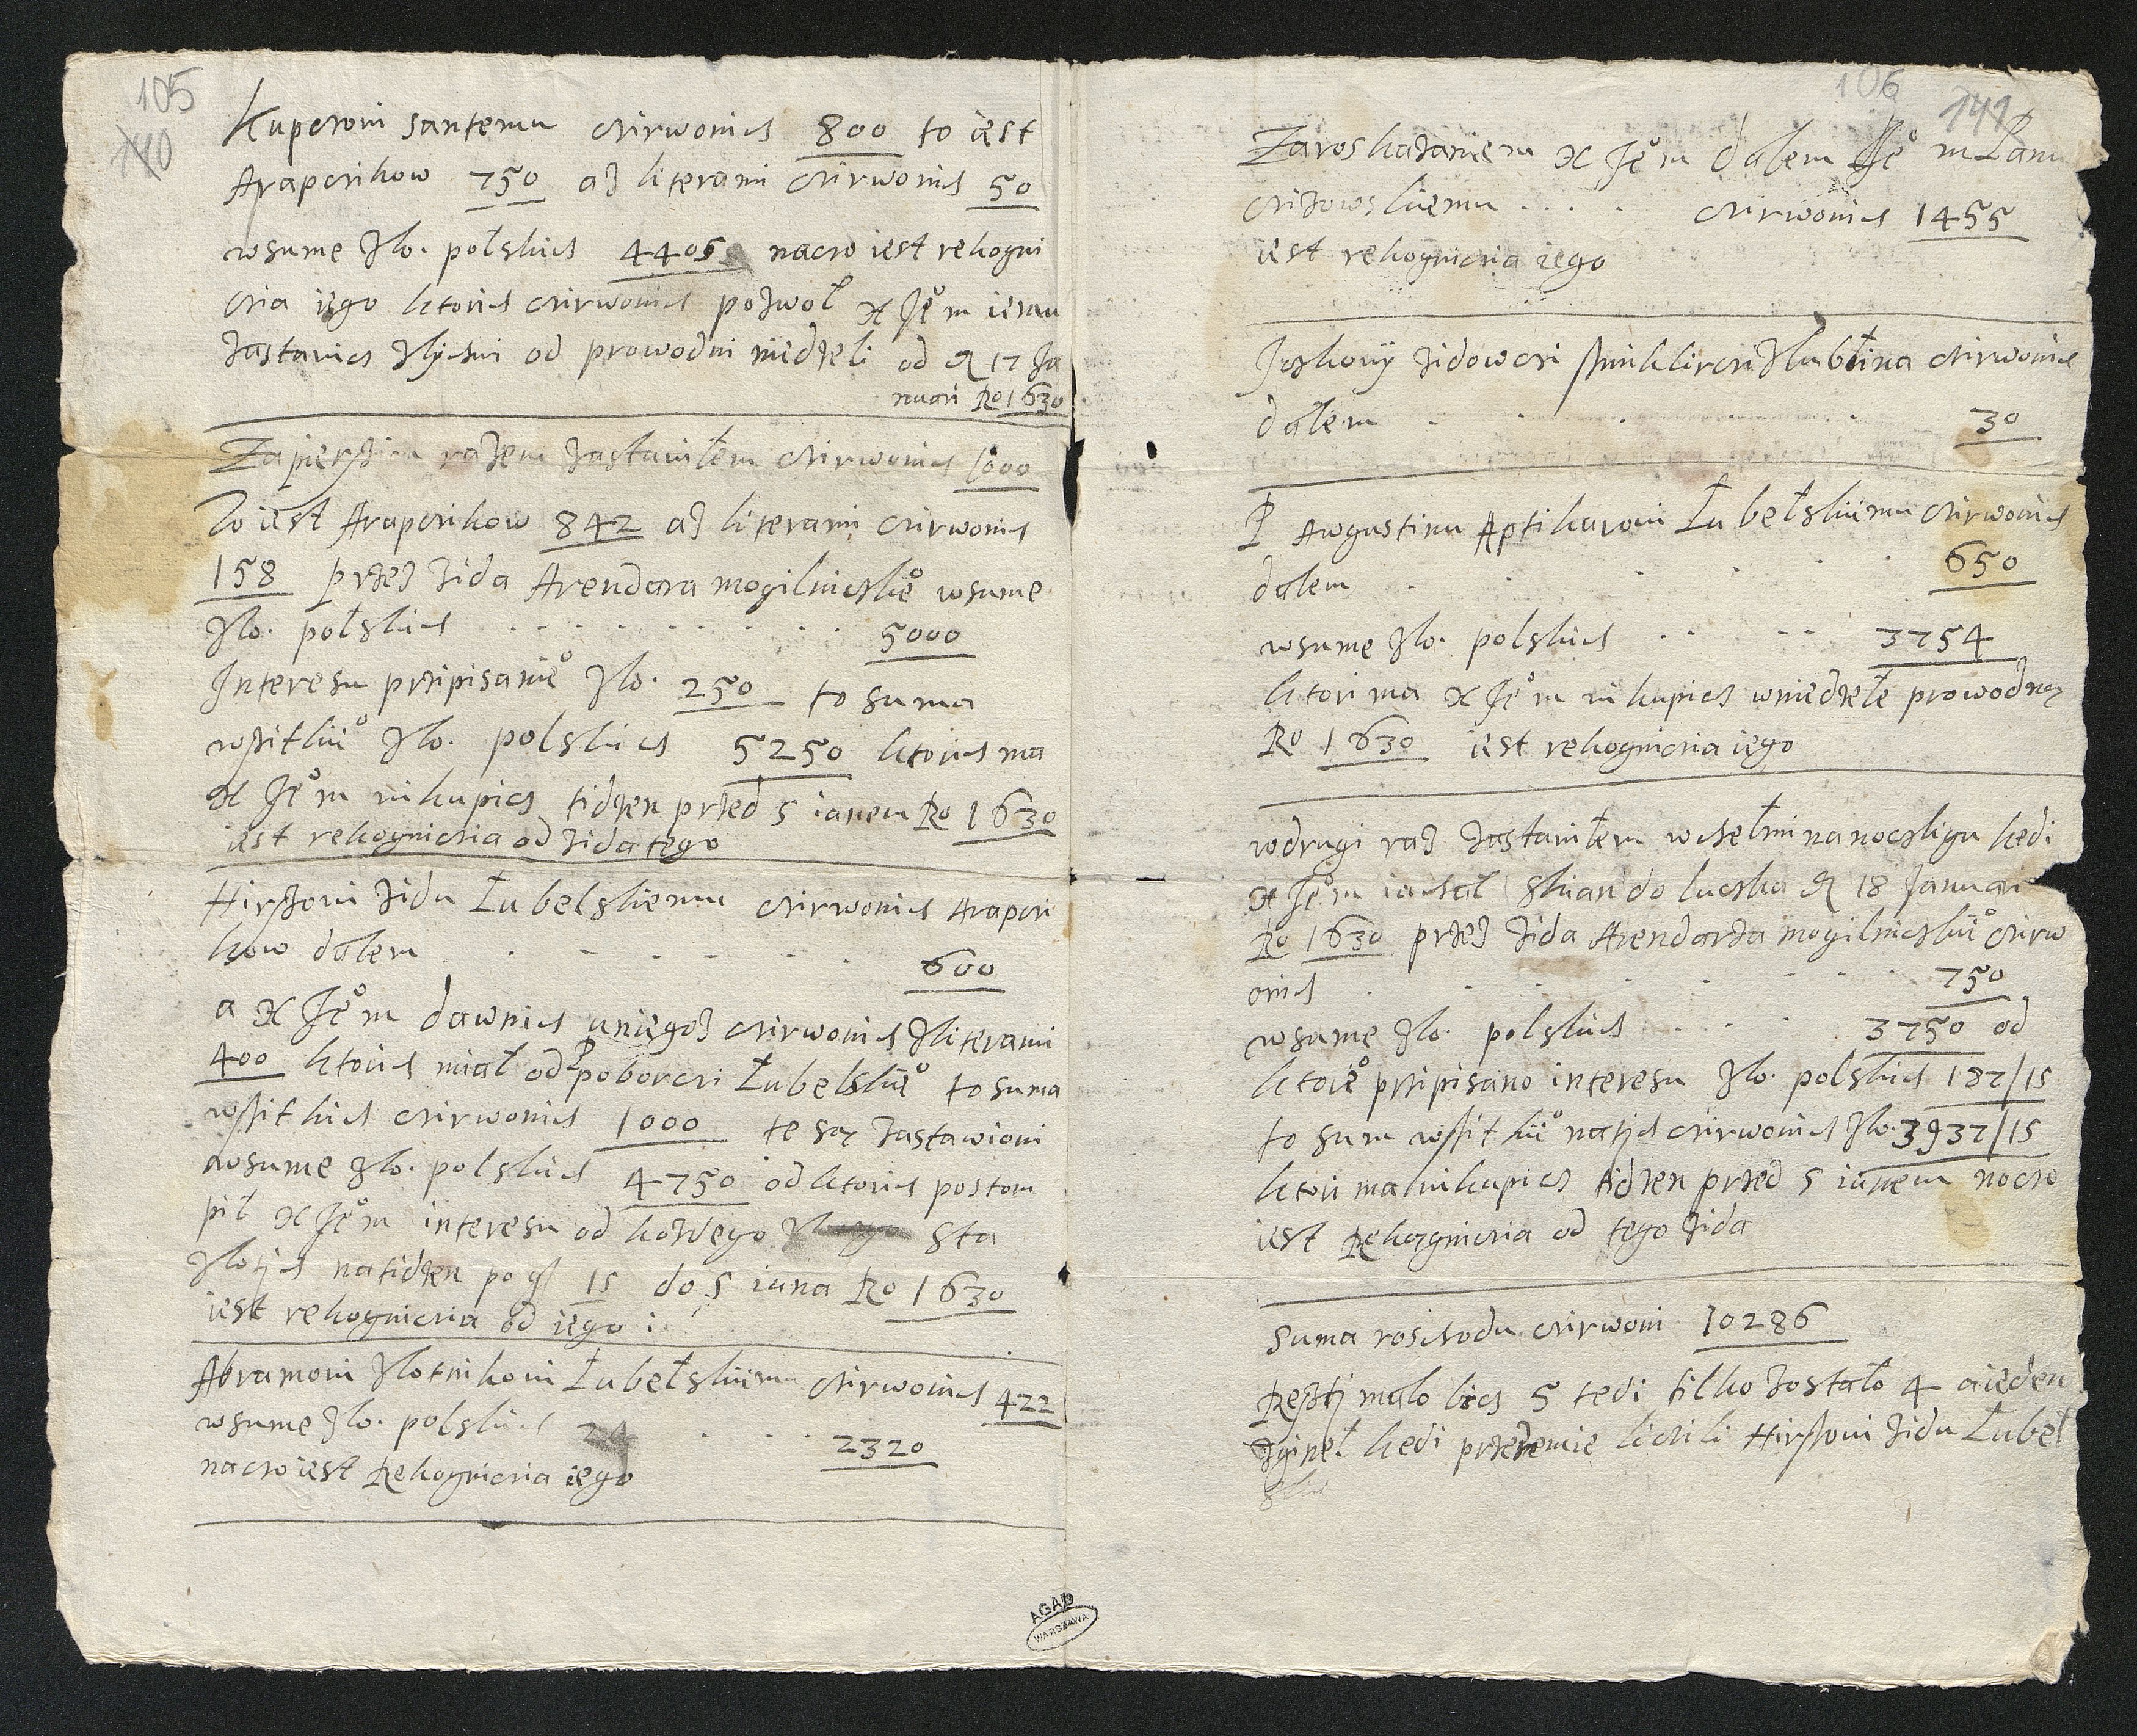 105
140
Kuperowi santemu crirwonich 800 to iest
Arapcrikow 750 az literami crirwonich 50
wsume zło. polskich 4405 nacro iest rekogni
cria iego ktorich crirwonich pozwol X Je° m
zastavics od prowodni niedzeli od 17 Ja
nuari Ro 1630
razem zastavilem crirwonich 1000
To iest Arapcrikow 842 az literami crirwonich
158 przez zida Arendara mogilnicskie° wsume
zło. polskich 5000
Interesu pripisanie° zło. 250 to suma
wsitkie° zło. polskich 5250 ktorich ma
X Je° m vikupics tidzen przed S ianem Ro 1630
iest rekognicria od zida tego
Hirszowi zidu Lubelskiemu crirwonich Arapcri
kow dalem 600
a X Je° m dawnich uniegoz crirwonich zliterami
400 ktorich mial od P poborcri Lubelskie° to suma
wsitkich crirwonich 1000 te są zastawioni
wsume zło. polskich 4750 od ktorich postom
pil X Je° m interesu od kozdego sta
zlotich natidzen po gſ 15 do S iana Ro 1630
iest rekognicria od iego :
Abramowi zlotnikowi Lubelskiemu crirwonich 422
wsume zło. polskich 2320
nacro iest Rekognicria iego
106
141
Zaroskazaniem X Je° m dalem Je° m Panu
crizowskiemu crirwonich 1455
iest rekognicria iego
Joskowÿ zidowcri zlublina crirwonich
dalem 30
P Awgustinu Aptikarowi Lubelskiemu crirwonich
dalem 650
wsume zło. polskich 3754
ktori ma X Je° m vikupics wniedzele prowodną
Ro 1630 iest rekognicria iego
wdrugi raz zastavilem wchelmi nanocsligu kedi
X Je° m iachal do lucska 18 Januari
Ro 1630 przez zida Arendarza mogilnicskie° crirw
onich 750
wsume zło. polskich 3750 od
ktorie° pripisano interesu zło. polskich 187/15
to sum wsitkie° natich crirwonich zło. 3937/15
ktori ma vikupics tidzen przed S ianem nacro
iest Rekognicria od tego zida
Suma roschodu crirwoni 10286
Reszti malo bics 5 tedi tilko zostalo 4 aieden
zginel kedi przedemie licrili Hirszowi zidu Lubel
ski
AGAD
WARSZAWA